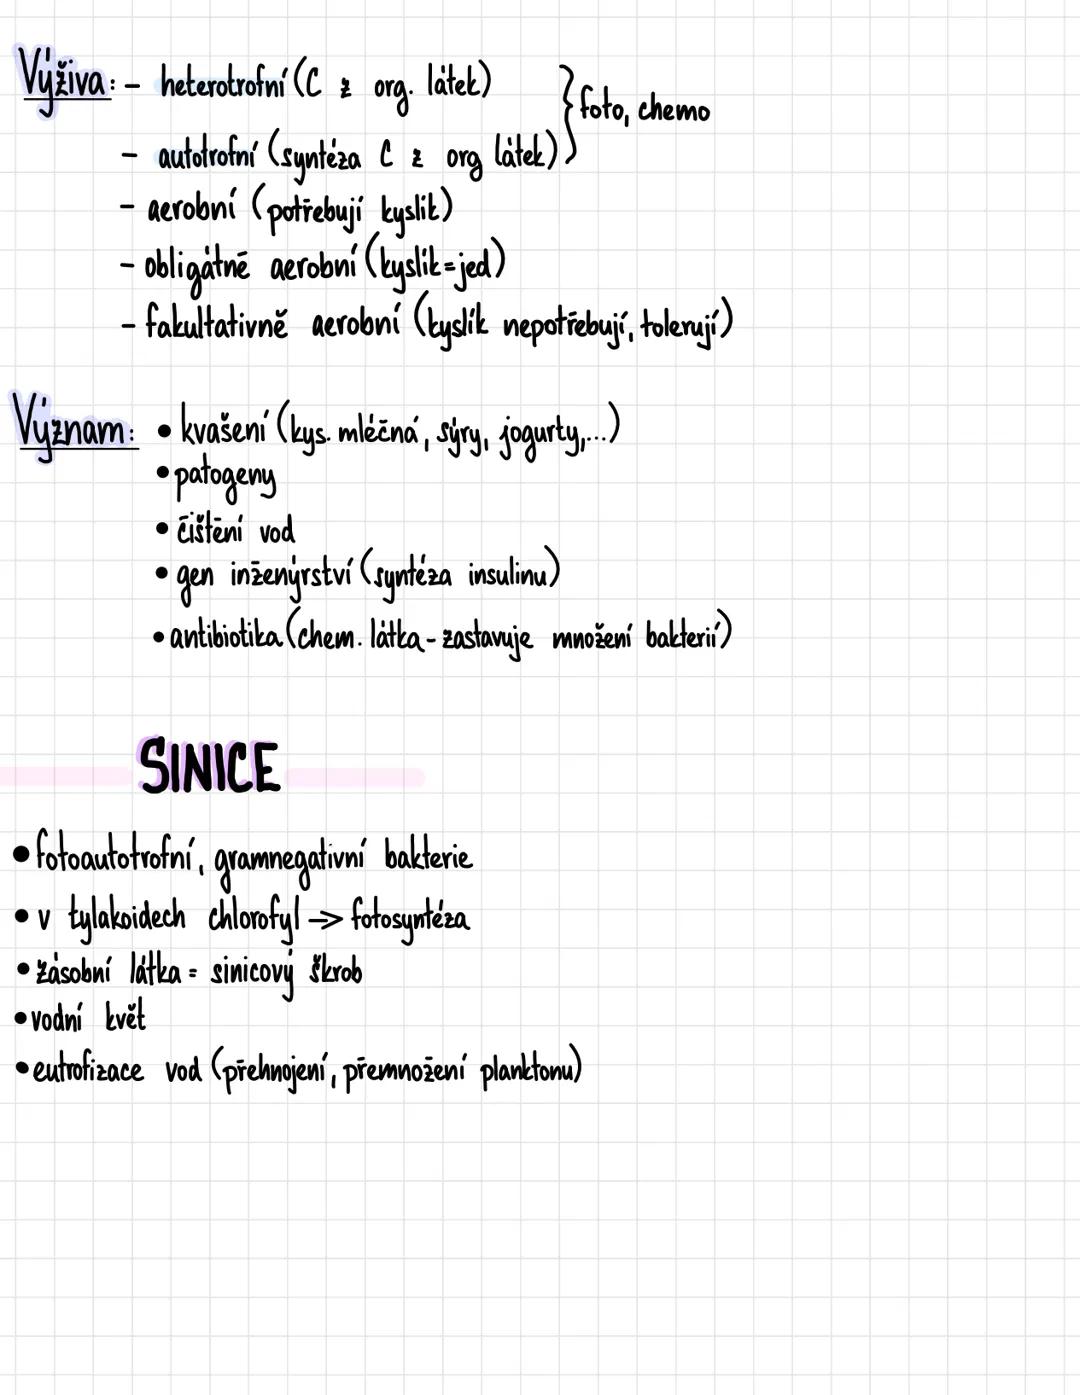 Výživa: - heterotrofní (C z org. látek) } foto, chemo
- autotrofní (syntéza C z org látek)
- aerobní (potřebují kyslík)
- obligátně aerobní (kyslík=jed)
- fakultativně aerobní (kyslík nepotřebují, tolerují)
Význam: • kvašení (kys. mléčná, sýry, jogurty,...)
• patogeny
• čištění vod
• gen inženýrství (syntéza insulinu)
• antibiotika (chem. látka - zastavuje množení bakterií)
SINICE
• fotoautotrofní, gramnegativní bakterie
• v tylakoidech chlorofyl → fotosyntéza
• zásobní látka = sinicový škrob
• vodní květ
• eutrofizace vod (přehnojení, přemnožení planktonu)